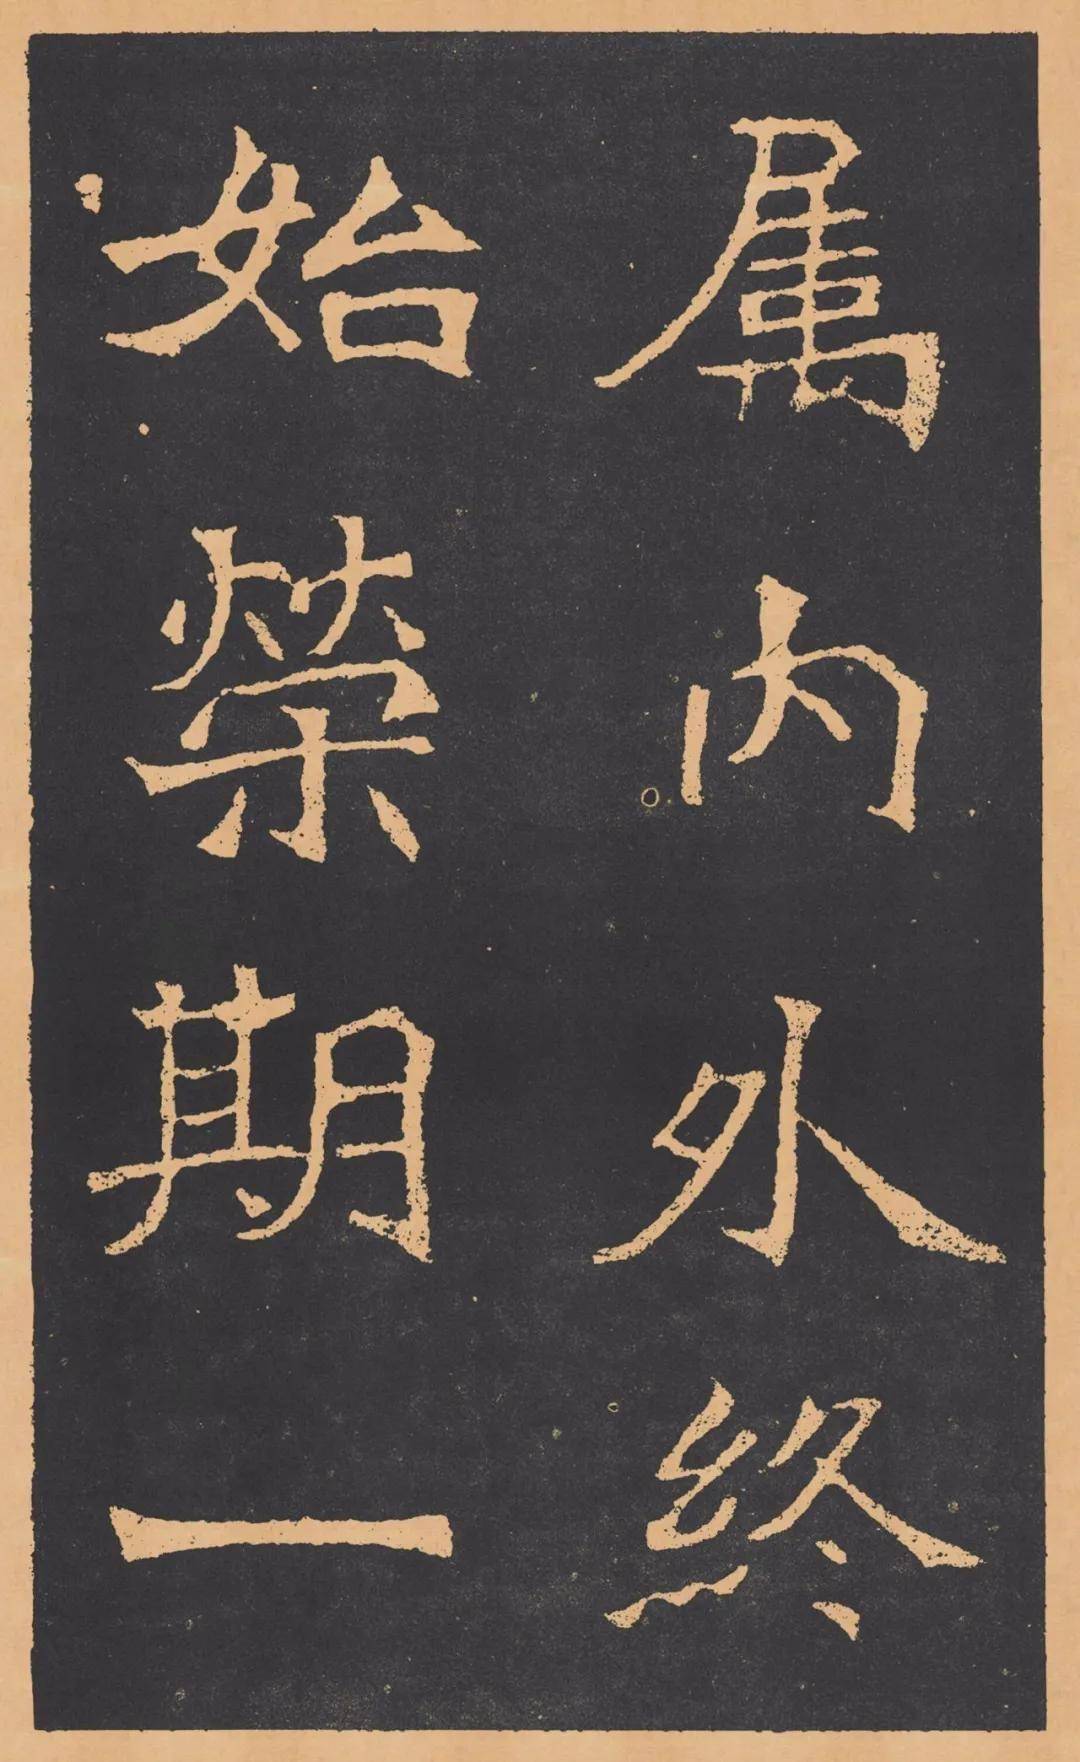 属内外終
始榮期一